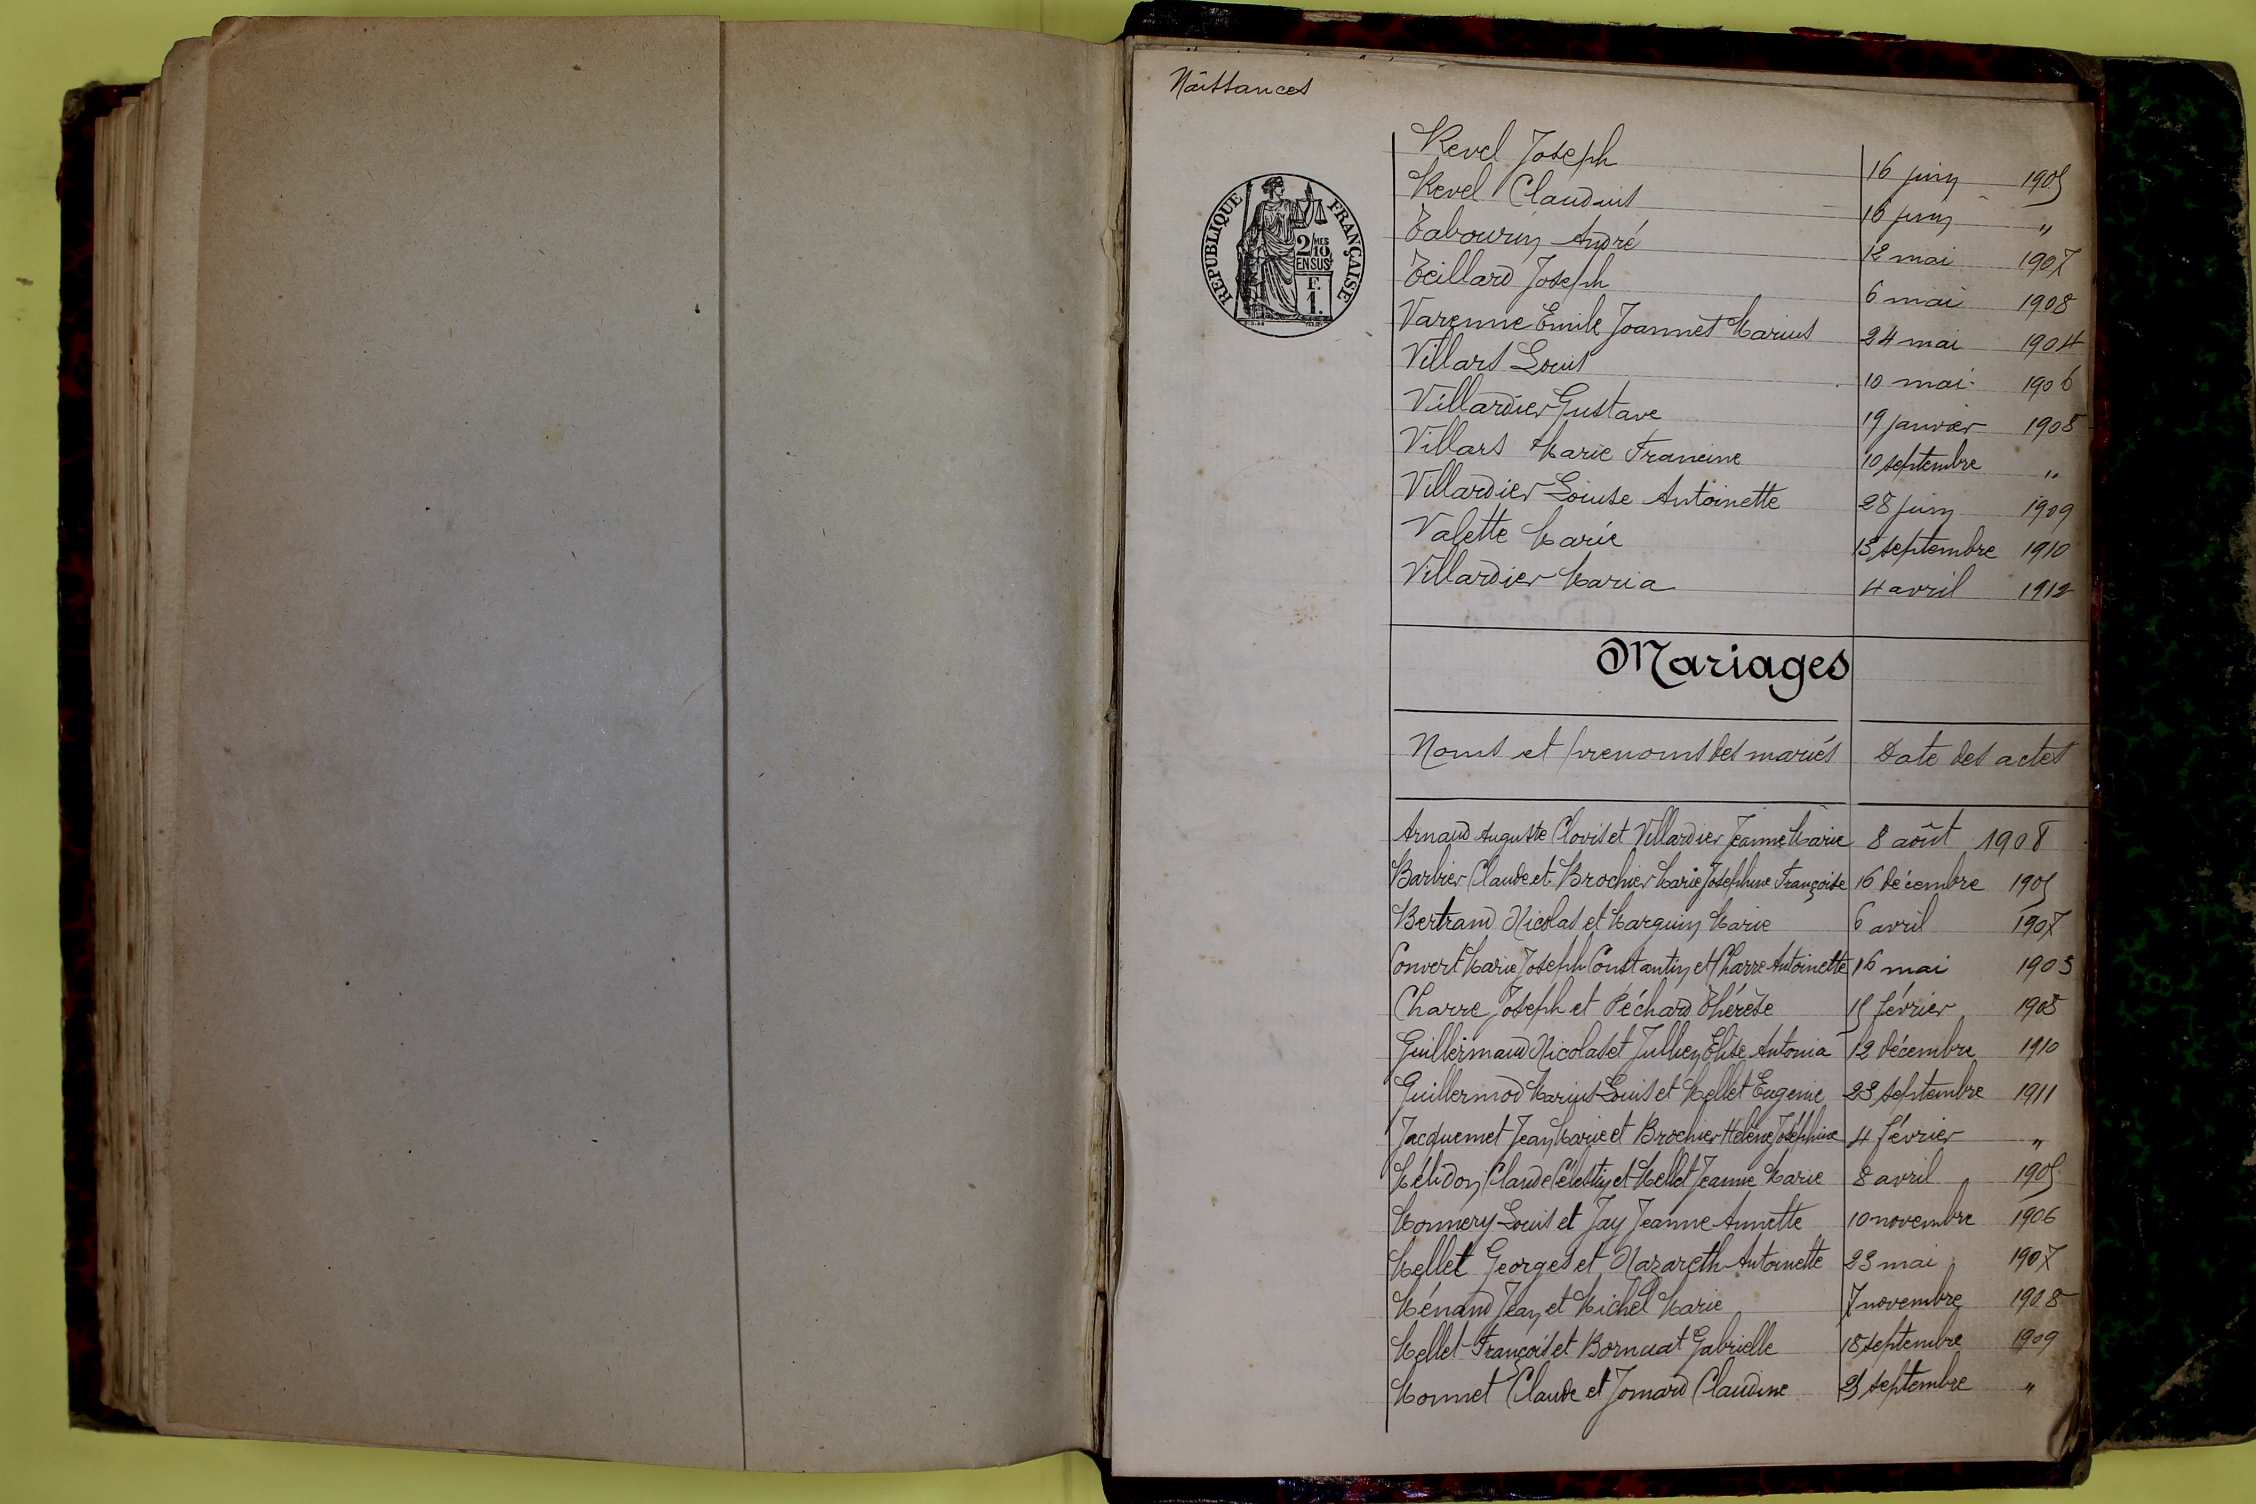 Naissances
Revel Joseph 16 juin 1905
Revel Claudius 16 juin "
Tabourin André 12 mai 1907
Teillard Joseph 6 mai 1908
Varenne Emile Joannes Marius 24 mai 1904
Villars Louis 10 mai 1906
Villardier Gustave 19 janvier 1908
Villars Marie Francine 10 septembre "
Villardier Louise Antoinette 28 juin 1909
Valette Marie 13 septembre 1910
Villardier Maria 4 avril 1912
REPUBLIQUE FRANÇAISE
2/MES
10
EN SUS
F.
1.
Mariages
Noms et prenoms des mariés Date des actes
Arnaud Auguste Clovis et Villardier Jeanne Marie 8 août 1908
Barbier Claude et Brochier Marie Josephine Françoise 16 décembre 1905
Bertrand Nicolas et Marguin Marie 6 avril 1907
Convert Marie Joseph Constantin et Charre Antoinette 16 mai 1903
Charre Joseph et Péchard Thérèse 15 février 1908
Guillermaud Nicolas et Jullien Elise Antonia 12 décembre 1910
Guillermod Marius Louis et Mellet Eugenie 23 septembre 1911
Jacquemet Jean Marie et Brochier Hélène Joséphine 4 février "
Mélidon Claude Célestin et Mellet Jeanne Marie 8 avril 1905
Monnery Louis et Jay Jeanne Annette 10 novembre 1906
Mellet Georges et Nazareth Antoinette 23 mai 1907
Ménand Jean et Michel Marie 7 novembre 1908
Mellet François et Bornuat Gabrielle 18 septembre 1909
Monnet Claude et Jomard Claudine 25 septembre "